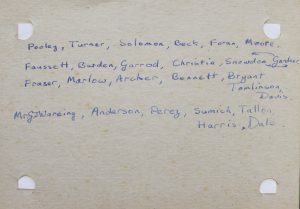 Pooley, Turner, Solomon, Beck, Foran, Moore,
Faussett, Burden, Garrod, Christie, Snowdon, Gardner,
Fraser, Marlow, Archer, Bennett, Bryant
Tomlinson,
Davis.
Mr Wareing, Anderson, Perez, Sumich, Tallon,
Harris, Dale